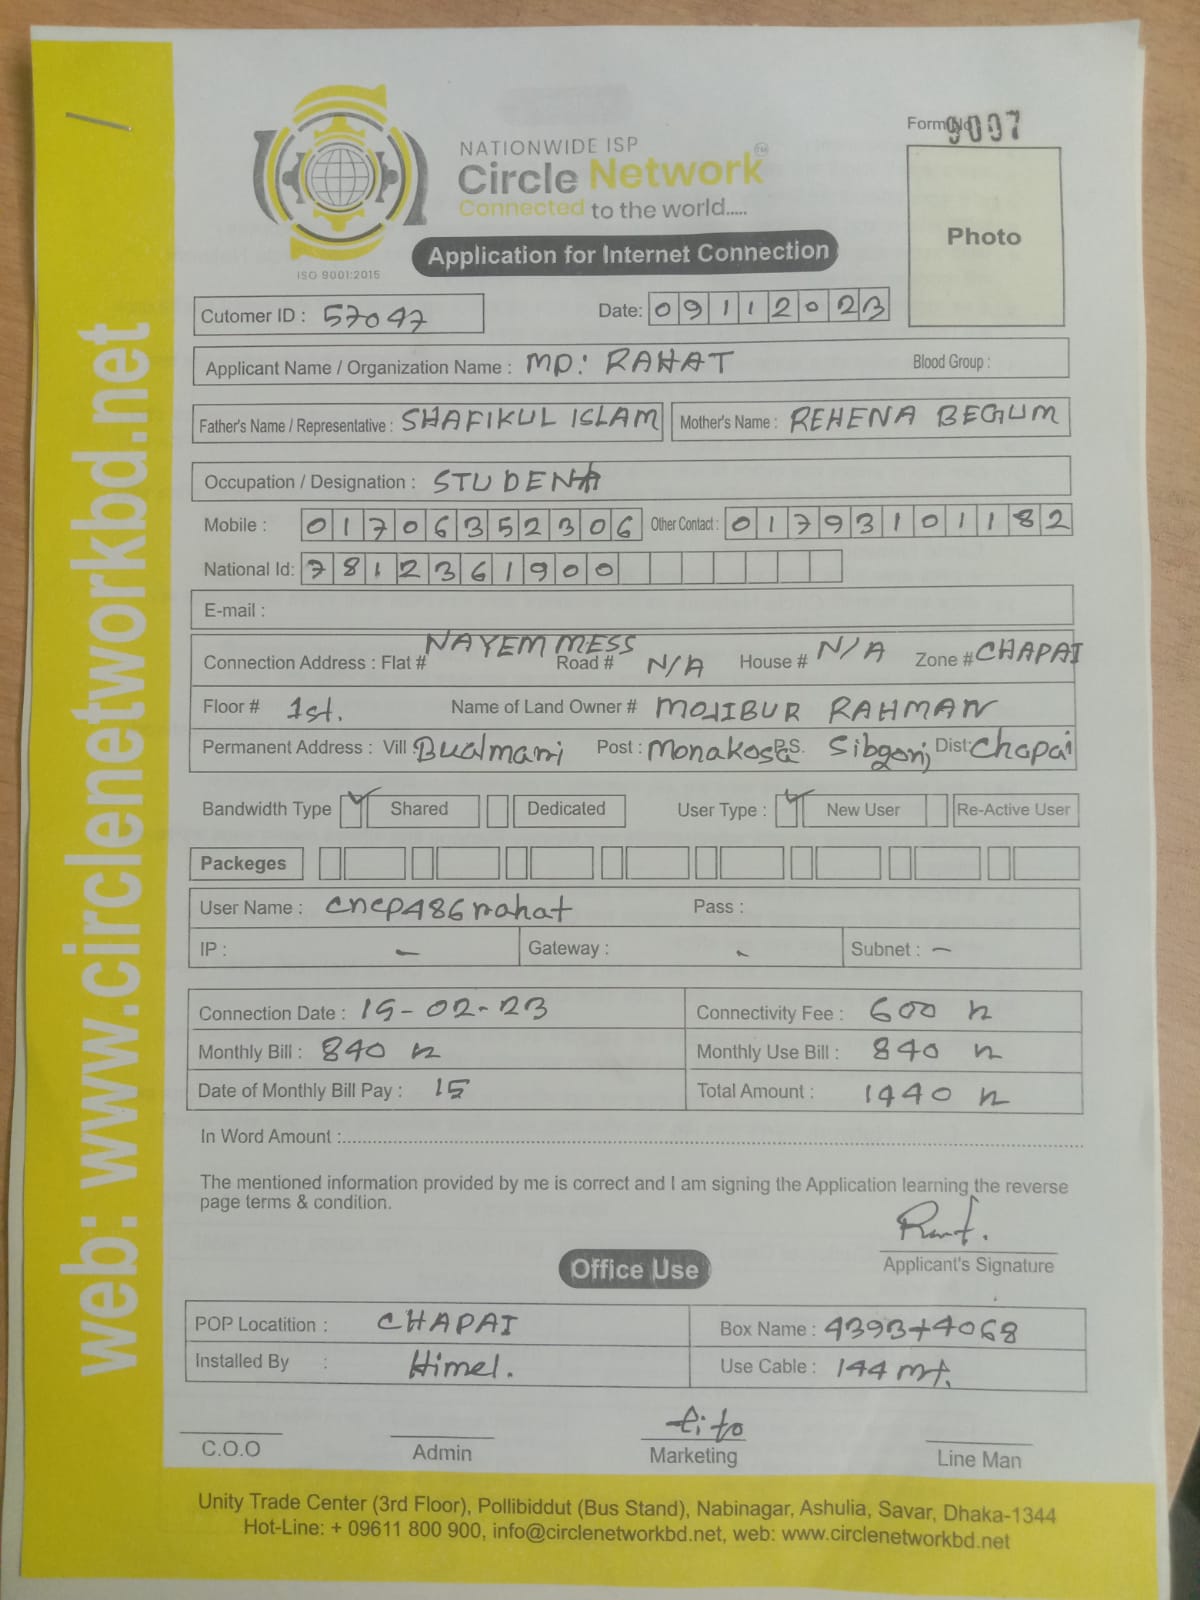 web: www.circlenetworkbd.net
NATIONWIDE ISP
Circle Network TM
Connected to the world.....
ISO 9001:2015
Application for Internet Connection
Form No 9007
Photo
Cutomer ID : 57047
Date: 09112023
Applicant Name / Organization Name : MD: RAHAT Blood Group :
Father's Name / Representative : SHAFIKUL ISLAM Mother's Name : REHENA BEGUM
Occupation / Designation : STUDENT
Mobile : 01706352306 Other Contact : 01793101182
National Id: 7812361900
E-mail :
Connection Address : Flat # NAYEM MESS Road # N/A House # N/A Zone # CHAPAI
Floor # 1st. Name of Land Owner # MOJIBUR RAHMAN
Permanent Address : Vill Bualmari Post : Monakosa P.S. Sibgonj Dist: Chapai
Bandwidth Type Shared Dedicated User Type : New User Re-Active User
Packeges
User Name : cncp486rahat Pass :
IP : - Gateway : - Subnet : -
Connection Date : 15-02-23 Connectivity Fee : 600
Monthly Bill : 840 Monthly Use Bill : 840
Date of Monthly Bill Pay : 15 Total Amount : 1440
In Word Amount :
The mentioned information provided by me is correct and I am signing the Application learning the reverse
page terms & condition.
Applicant's Signature
Office Use
POP Locatition : CHAPAI Box Name : 4393+4068
Installed By : Himel. Use Cable : 144 mt.
C.O.O Admin Marketing Line Man
Unity Trade Center (3rd Floor), Pollibiddut (Bus Stand), Nabinagar, Ashulia, Savar, Dhaka-1344
Hot-Line: + 09611 800 900, info@circlenetworkbd.net, web: www.circlenetworkbd.net